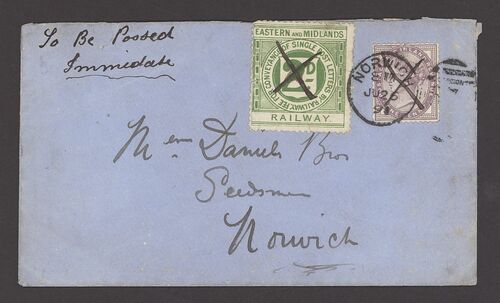 To Be Possed
Immediate
EASTERN AND MIDLANDS
FEE FOR CONVEYANCE OF SINGLE POST LETTERS BY RAILWAY
2D
RAILWAY
NORWICH
JU 26
Messrs Daniels Bros
Seedsmen
Norwich